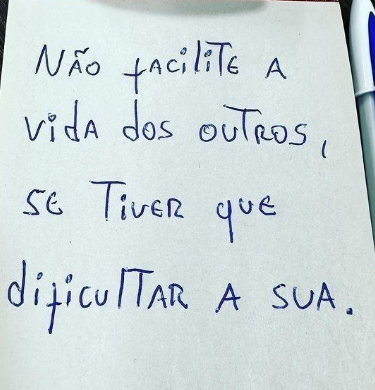 Não facilite a
vida dos outros,
se tiver que
dificultar a sua.